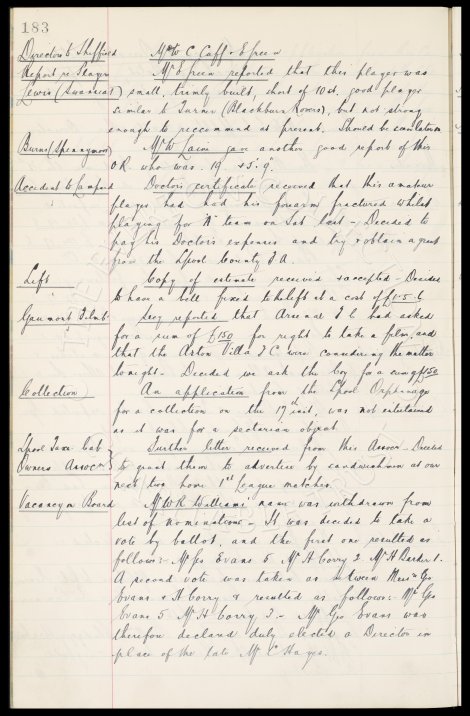 183
Directors to Sheffield Mr W C Cuff & Green
Report re Player Mr Green reported that this player was
Lewis (Swansea) small, trimly built, chest of 10st, good player
similar to Turner (Blackburn Rovers), but not strong
enough to recommend at present. Should be
Burns (Spennymoor) Mr W gave another good report of this
O.R. who was 19 & 5.9.
Accident to Doctors certificate received that this amateur
player had had his forearm fractured whilst
playing for "A" team on Sat last - Decided to
pay his Doctors expenses and try & obtain a grant
from the Lpool County F.A.
Lift Copy of estimate received & accepted - Decided
to have a bell fixed to the lift at a cost of £1.5.6
Gaumont Films Secy reported that Arsenal F C had asked
for a sum of £150 for right to take a film, and
that the Aston Villa F C were considering the matter
tonight - Decided we ask the Coy for a sum of £150
Collection An application from the Lpool Orphanage
for a collection on the 17th inst, was not entertained
as it was for a sectarian object
Lpool Taxi Cab Further letter received from this Assocn - Decided
Owners Assocn to grant them to advertise by sandwichmen at our
next two home 1st League matches.
Vacancy on Board Mr W R Williams' name was withdrawn from
list of nominations - It was decided to take a
vote by ballot, and the first one resulted as
follows:- Mr Geo Evans 5 Mr H Corry 2 Mr H Barker 1.
A second vote was taken as between Messrs Geo
Evans & H Corry & resulted as follows:- Mr Geo
Evans 5 Mr H Corry 3 - Mr Geo Evans was
therefore declared duly elected a Director in
place of the late Mr C Hayes.